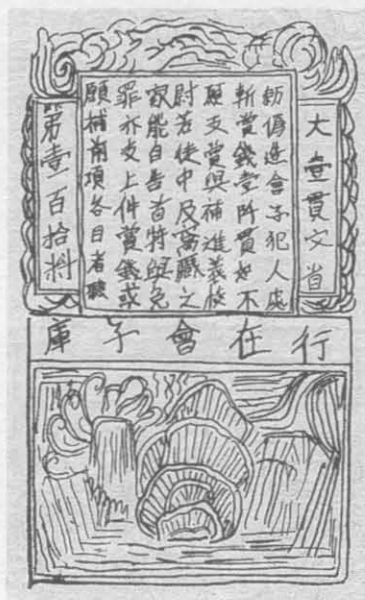 大壹貫文省
勅偽造會子犯人處
斬賞錢壹阡貫如不
願支賞與補進義校
尉若徒中及窩藏之
家能自告首特與免
罪亦支上件賞錢或
願補前項名目者聽
第壹百拾料
行在會子庫